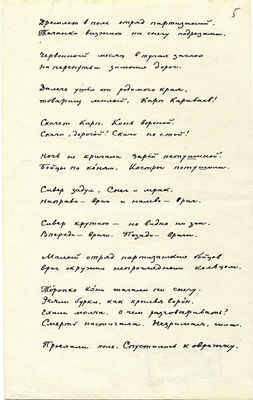 5
Дремлет в поле отряд партизанский.
Тачанка визжит на снегу подрезами.
Червонный месяц в тучах заглох
на перепутьи зимних дорог.
Далече ушел от родимого края,
товарищ милой, Карп Караваев!
Скачет Карп. Конь вороной.
Скачи, дорогой! Скачи не стой!
Ночь не кричала зарей петушиной.
Бойцы по коням. Костры потушили.
Сивер задул. Снег и мрак.
Направо - враг и налево - враг.
Сивер крутит - не видно ни зги.
Впереди - враги. Позади - враги.
Малой отряд партизанских бойцов
враг окружил непроглядным кольцом.
Торопко кони шагали по снегу.
Реяли бурки, как крылья ворон.
Ехали молча. О чем разговаривать?
Смерть настигала. Незримая, шла.
Проехали поле. Спустились к овражку.